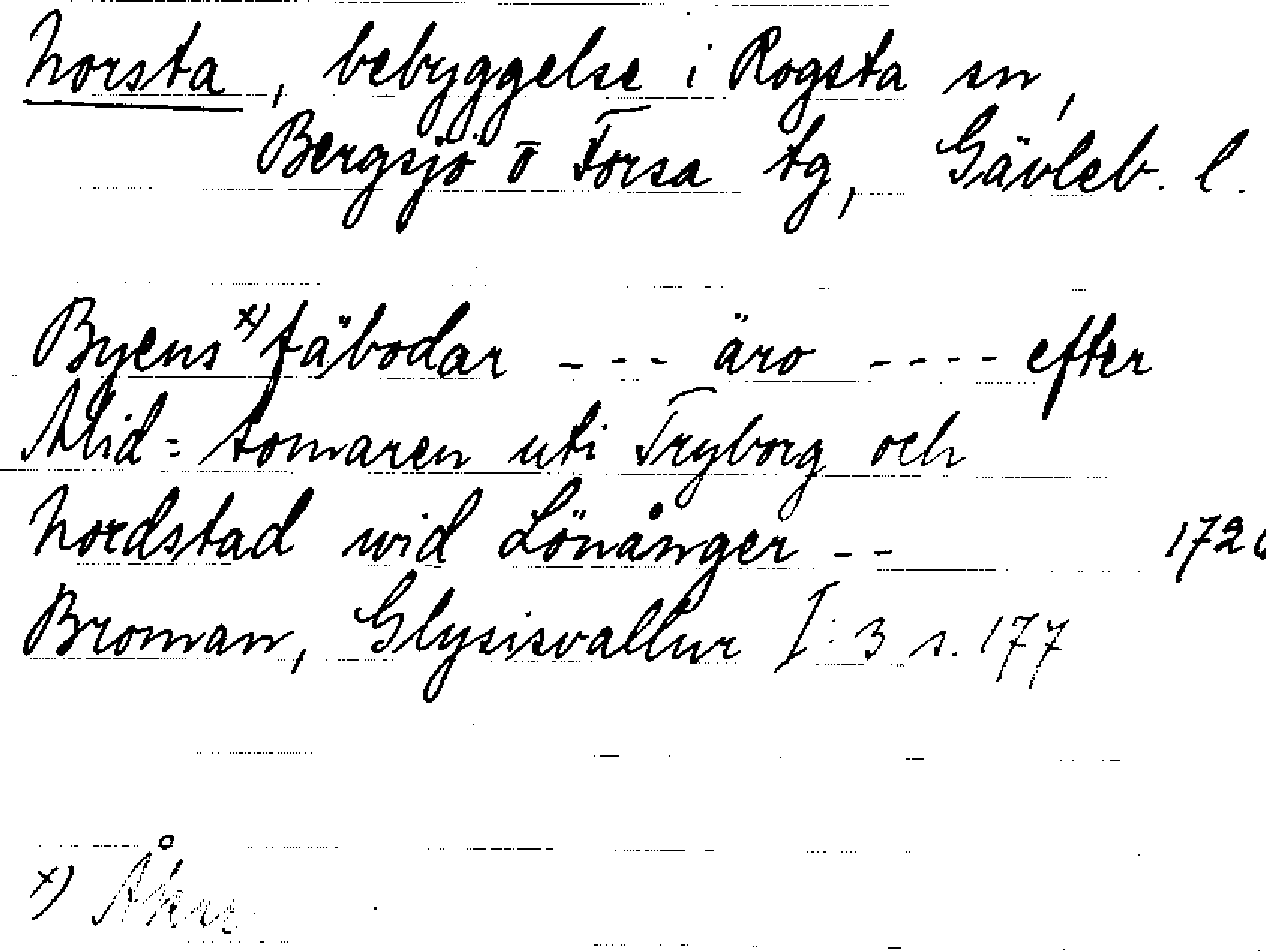 Norsta, bebyggelse i Rogsta sn,
Bergsjö o Forsa tg, Gävleb. l.
Byens x) fäbodar --- äro ---- efter
Mid= somaren uti Tryborg och
Nordstad wid Lönånger -- 1726
Broman, Glysisvallur I:3 s. 177
x) Åkre